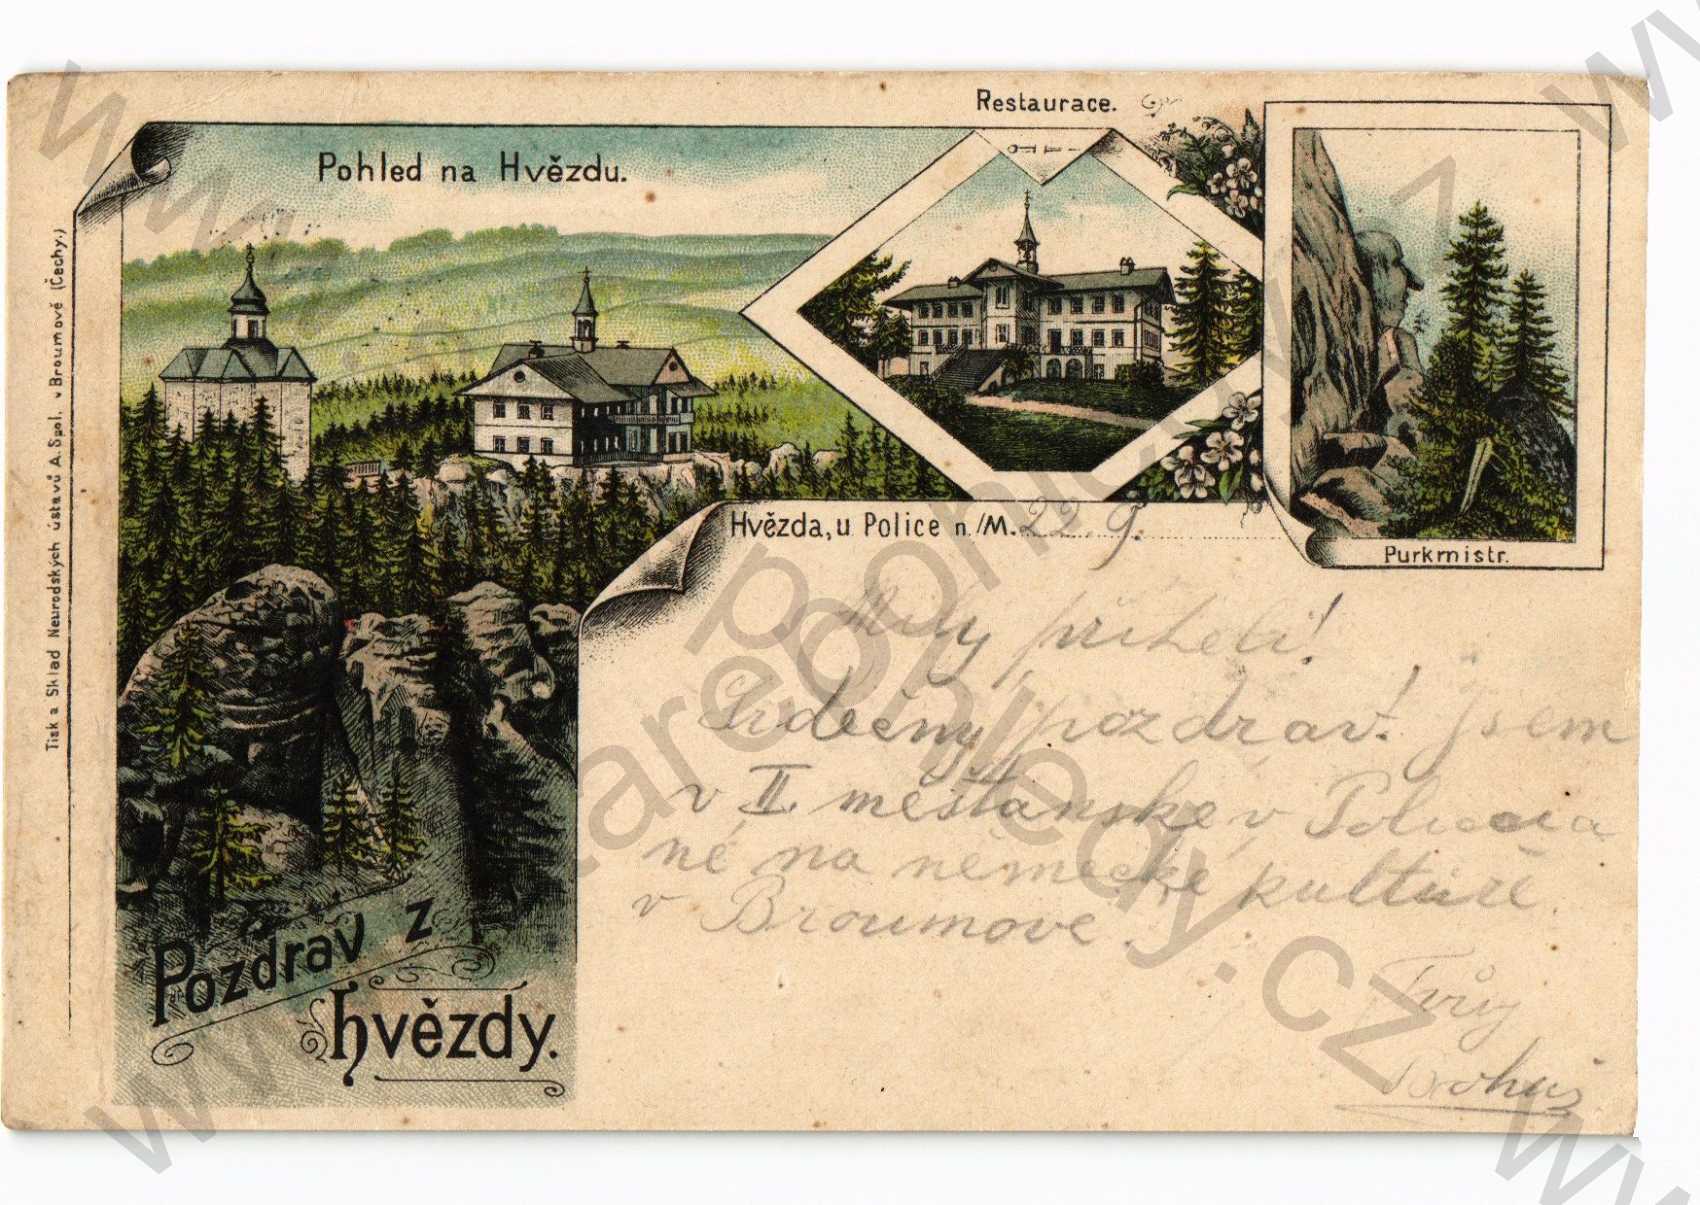 Restaurace.
Pohled na Hvězdu.
Tisk a Sklad Neurodských ústavů A. Spol. v Broumově (Čechy.)
Hvězda, u Police n./M. 22. 9.
Purkmistr.
Milý příteli!
Srdečný pozdrav! Jsem
v II. měšťanské v Polici a
né na německé kultuře
v Broumově.
Tvůj
Pozdrav z
hvězdy.
www.starepohledy.cz